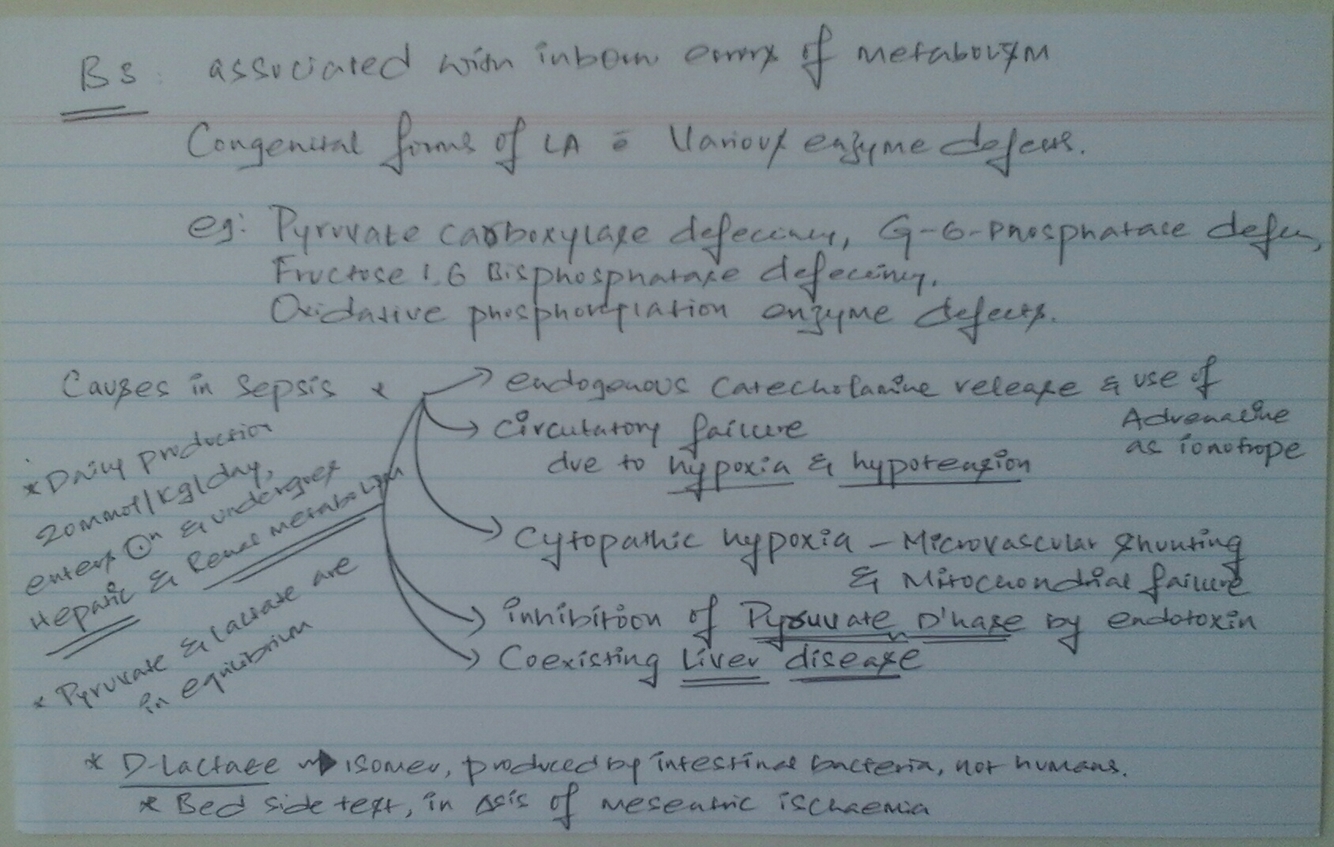 B3: associated with inborn errors of metabolism
Congenital forms of LA c̄ Various enzyme defects.
eg: Pyruvate carboxylase defeciency, G-6-Phosphatase defcn,
Fructose 1,6 Bisphosphatase defeciency.
Oxidative phosphorylation enzyme defects.
Causes in sepsis *
→ endogenous catecholamine release & use of
Adrenaline
as ionotrope
→ circulatory failure
due to hypoxia & hypotension
→ Cytopathic hypoxia – Microvascular shunting
& Mitochondrial failure
→ inhibition of Pyruvate D'nase by endotoxin
→ Coexisting Liver disease
* Daily production
20mmol/kg/day,
enters & undergoes
Hepatic & Renal metabolism
* Pyruvate & lactate are
in equilibrium
* D-Lactate → isomer, produced by intestinal bacteria, not humans.
* Bed side test, in Δsis of mesentric ischaemia